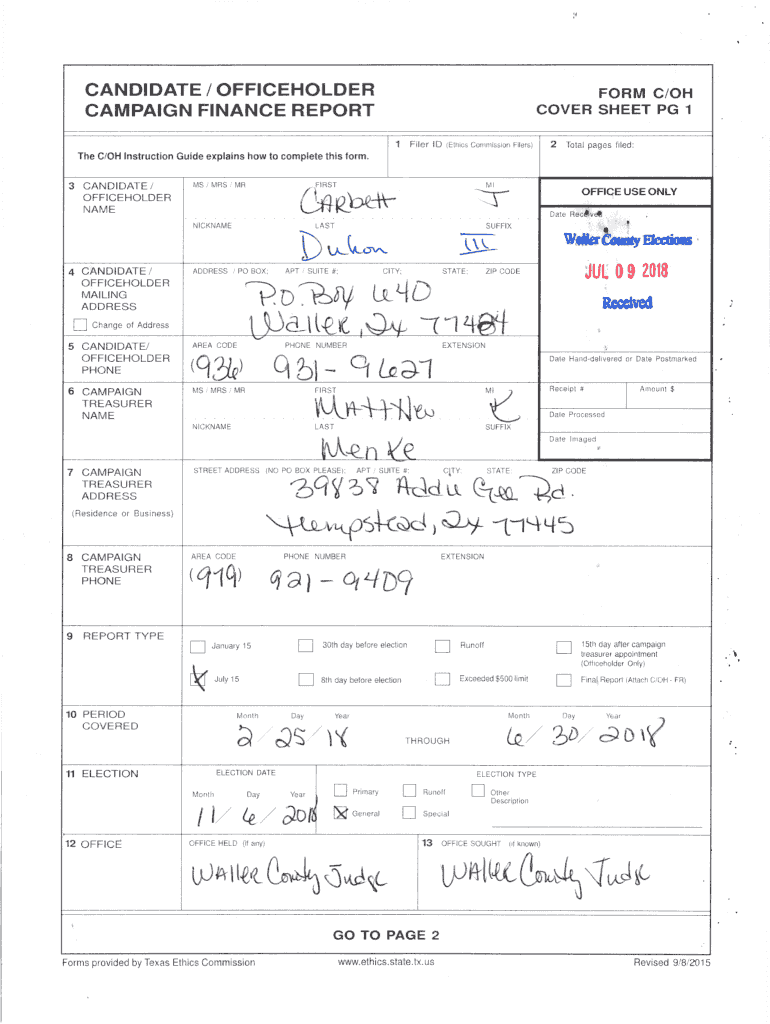 CANDIDATE / OFFICEHOLDER
CAMPAIGN FINANCE REPORT
FORM C/OH
COVER SHEET PG 1
The C/OH Instruction Guide explains how to complete this form.
1 Filer ID (Ethics Commission Filers)
2 Total pages filed:
3 CANDIDATE / OFFICEHOLDER NAME
MS / MRS / MR FIRST MI
CARbett J
NICKNAME LAST SUFFIX
Duhon III
OFFICE USE ONLY
Date Received
Waller County Elections
JUL 09 2018
Received
4 CANDIDATE / OFFICEHOLDER MAILING ADDRESS
Change of Address
ADDRESS / PO BOX; APT / SUITE #; CITY; STATE; ZIP CODE
P.O. Box 640
Waller, Tx 77484
5 CANDIDATE/ OFFICEHOLDER PHONE
AREA CODE PHONE NUMBER EXTENSION
(936) 931-9627
Date Hand-delivered or Date Postmarked
6 CAMPAIGN TREASURER NAME
MS / MRS / MR FIRST MI
MAttHew K
NICKNAME LAST SUFFIX
Menke
Receipt # Amount $
Date Processed
Date Imaged
7 CAMPAIGN TREASURER ADDRESS
(Residence or Business)
STREET ADDRESS (NO PO BOX PLEASE); APT / SUITE #; CITY; STATE; ZIP CODE
39838 Addie Gee Rd.
Hempstead, Tx 77445
8 CAMPAIGN TREASURER PHONE
AREA CODE PHONE NUMBER EXTENSION
(979) 921-9409
9 REPORT TYPE
January 15 30th day before election Runoff 15th day after campaign treasurer appointment (Officeholder Only)
X July 15 8th day before election Exceeded $500 limit Final Report (Attach C/OH - FR)
10 PERIOD COVERED
Month Day Year Month Day Year
2/25/18 THROUGH 6/30/2018
11 ELECTION
ELECTION DATE ELECTION TYPE
Month Day Year
11/6/2018
Primary Runoff Other Description
X General Special
12 OFFICE
OFFICE HELD (if any)
WAller County Judge
13 OFFICE SOUGHT (if known)
WAller County Judge
GO TO PAGE 2
Forms provided by Texas Ethics Commission www.ethics.state.tx.us Revised 9/8/2015